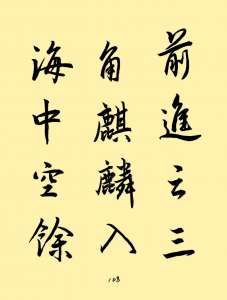 前進云三
角麒麟入
海中空餘